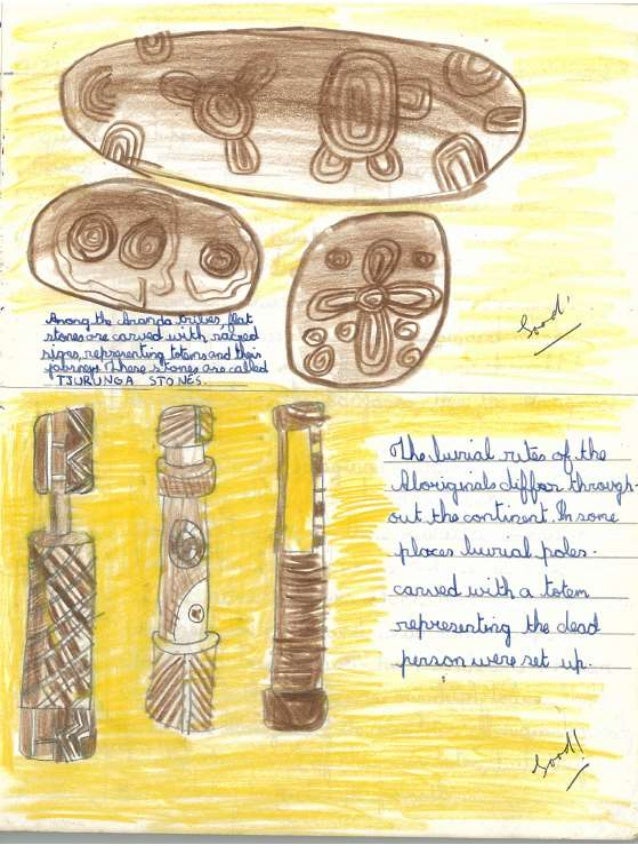 Good!
Among the Aranda tribes, flat
stones are carved with sacred
signs, representing totems and their
journeys. These stones are called
TJURUNGA STONES.
The burial rites of the
Aboriginals differ through-
out the continent. In some
places burial poles
carved with a totem
representing the dead
person were set up.
Good!